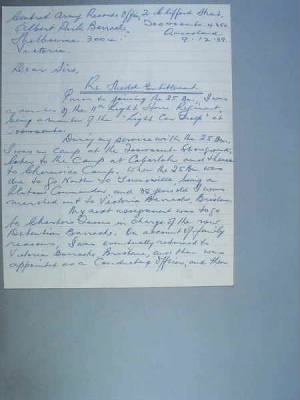 Central Army Records Office, 2 Clifford Street,
Albert Park Barracks, Toowoomba 4350
Melbourne 3004. Queensland
Victoria. 9.12.89
Dear Sirs,
Re Medal Entitlement
Prior to joining the 25 Bn, I was
a member of the 11th Light Horse Regiment
being a member of the "Light Car Troop" at
Toowoomba.
During my service with the 25 Bn
I was in Camp at the Toowoomba Showground,
later to the Camp at Caferlah and thence
to Chermside Camp. When the 25 Bn was
due to go North to Townsville, being a
Platoon Commander and personnel I was
marched out to Victoria Barracks, Brisbane.
My next assignment was to go
to Charters Towers in charge of the new
Detention Barracks. On account of family
reasons, I was eventually returned to
Victoria Barracks Brisbane, and then was
appointed as a Conducting Officer, and then